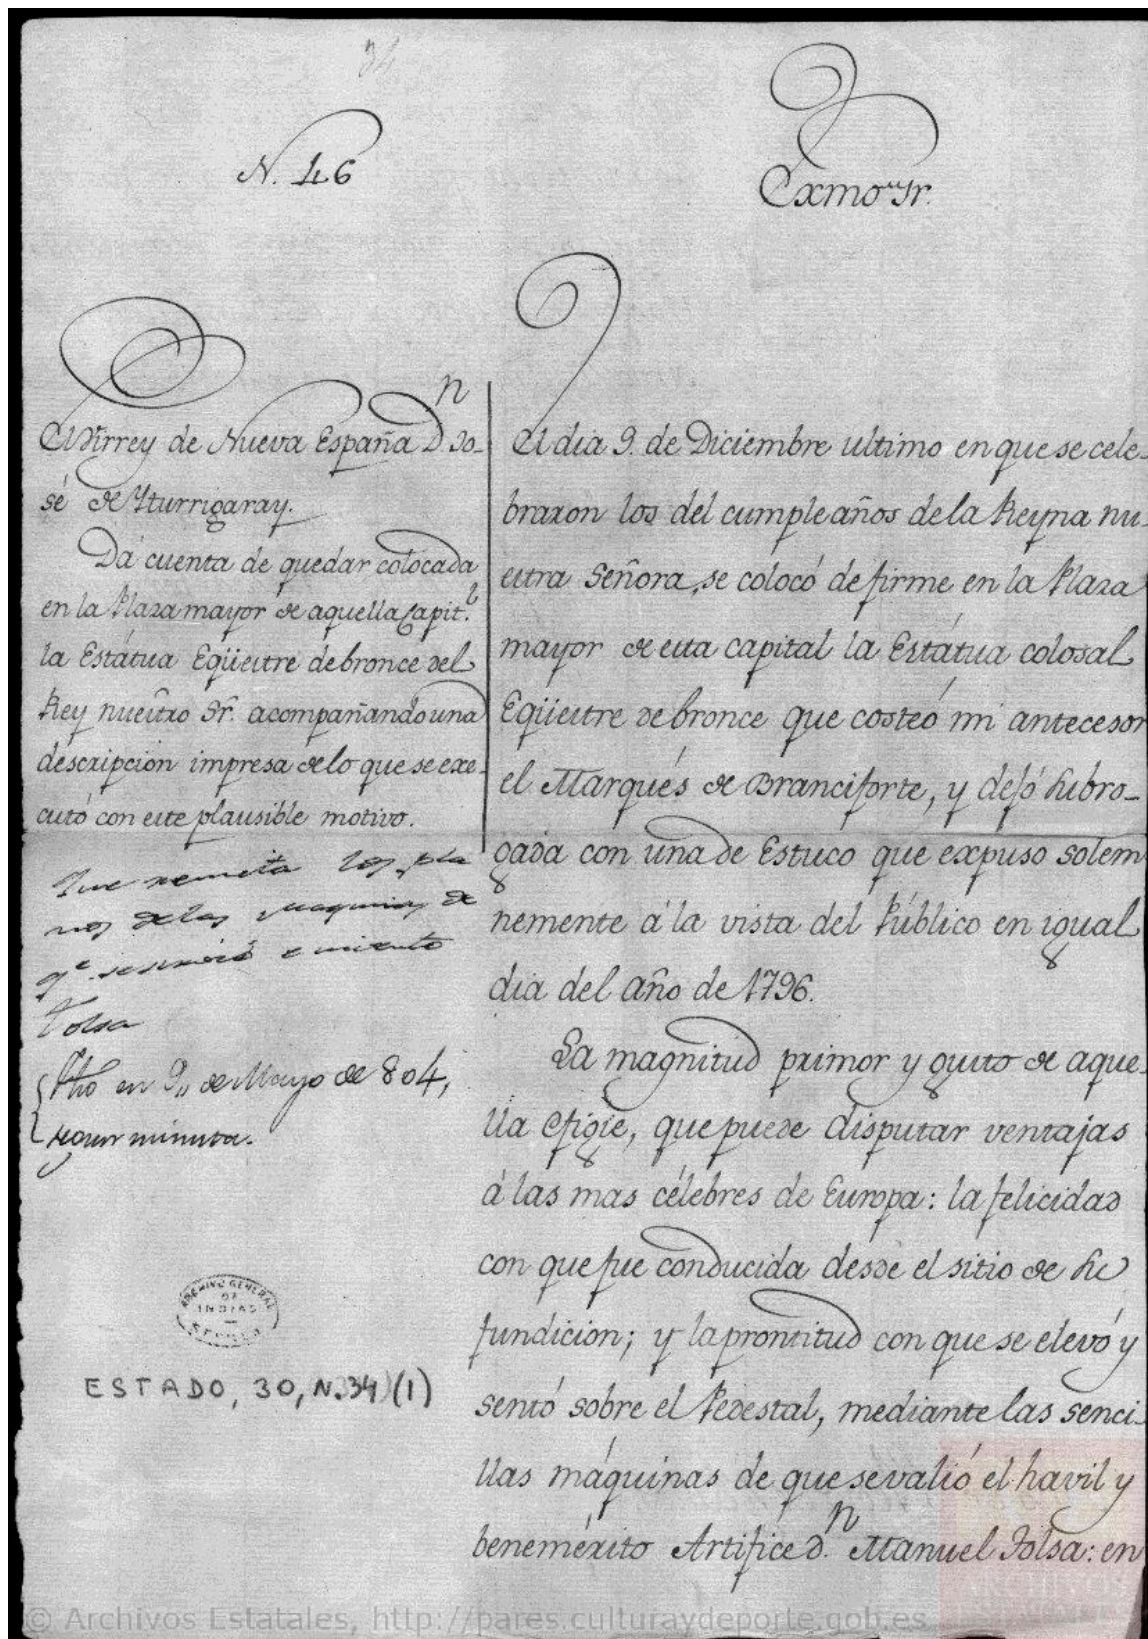 34
N. 46
Exmo. Sr.
El Virrey de Nueva España D.n Jo-
sé de Yturrigaray.
Da cuenta de quedar colocada
en la Plaza mayor de aquella Capit.l
la Estátua Eqüestre de bronce del
Rey nuestro Sr. acompañando una
descripcion impresa de lo que se exe-
cutó con este plausible motivo.
Que remita los pla
nos de las maquinas de
q.e se sirvió
Tolsa
fho en 9,, de Mayo de 804,
segun minuta.
El dia 9. de Diciembre ultimo en que se cele-
braron los del cumpleaños de la Reyna nu-
estra Señora, se colocó de firme en la Plaza
mayor de esta capital la Estátua colosal
Eqüestre de bronce que costeó mi antecesor
el Marqués de Branciforte, y dejó subro-
gada con una de Estuco que expuso solem
nemente á la vista del Público en igual
dia del año de 1796.
La magnitud primor y gusto de aque-
lla efigie, que puede disputar ventajas
á las mas célebres de Europa: la felicidad
con que fue conducida desde el sitio de su
fundicion; y la prontitud con que se elevó y
sentó sobre el Pedestal, mediante las senci-
llas máquinas de que se valió el havil y
benemérito Artifice d.n Manuel Tolsa: en
ARCHIVO GENERAL
DE
INDIAS
SEVILLA
ESTADO, 30, N.34 (1)
© Archivos Estatales, http://pares.culturaydeporte.gob.es